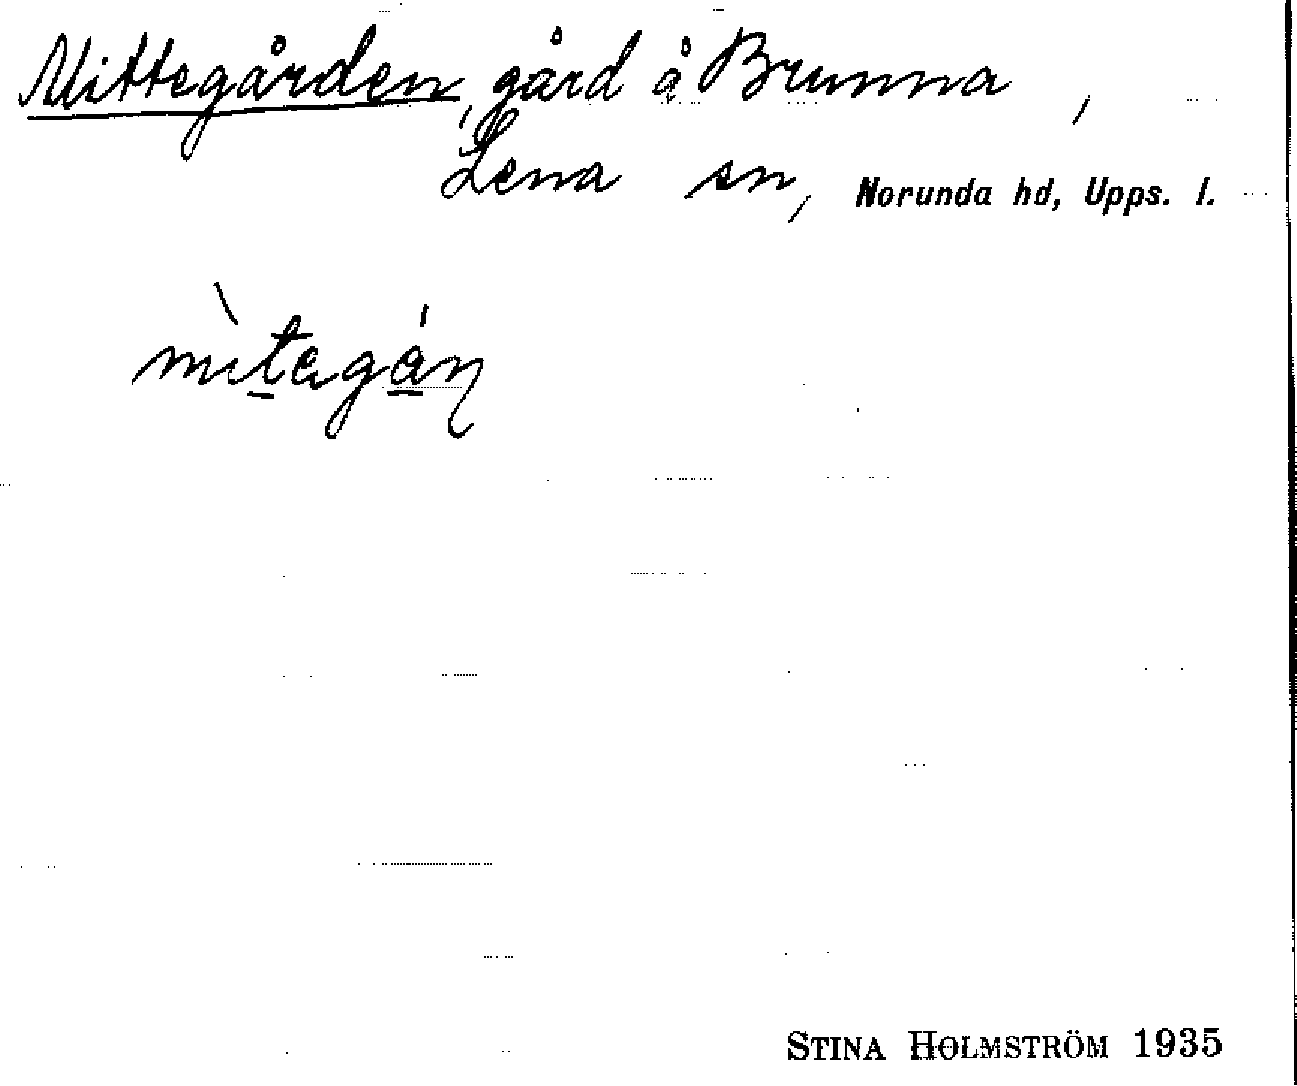 Mittegården, gård å Brunna,
Lena sn, Norunda hd, Upps. l.
mı̀t̲egá̲ɳ
STINA HOLMSTRÖM 1935